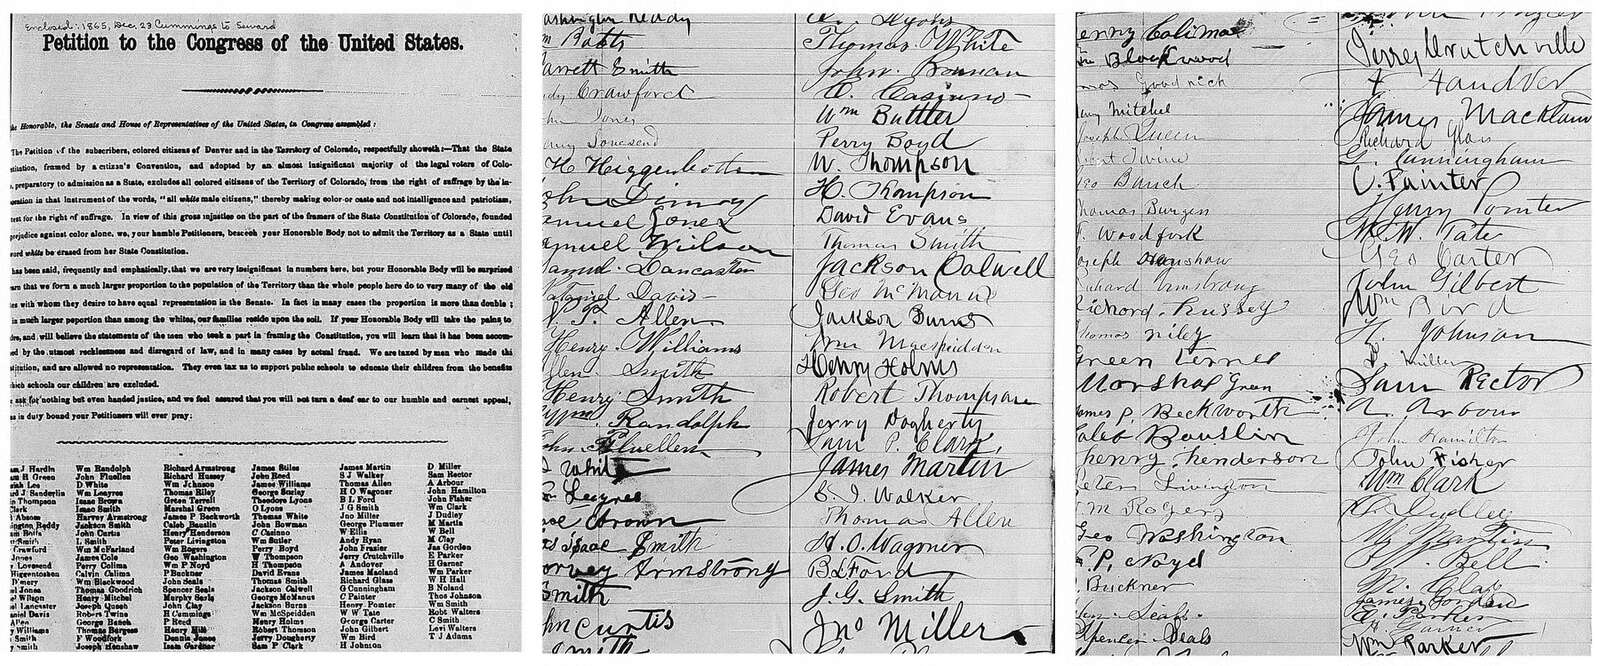 Enclosed: 1865, Dec. 23 Cummings to Seward
Petition to the Congress of the United States.
Honorable, the Senate and House of Representatives of the United States, in Congress assembled:
The Petition of the subscribers, colored citizens of Denver and in the Territory of Colorado, respectfully showeth:—That the State
framed by a citizen's Convention, and adopted by an almost insignificant majority of the legal voters of Colo-
preparatory to admission as a State, excludes all colored citizens of the Territory of Colorado, from the right of suffrage by the in-
in that instrument of the words, "all white male citizens," thereby making color or caste and not intelligence and patriotism,
for the right of suffrage. In view of this gross injustice on the part of the framers of the State Constitution of Colorado, founded
prejudice against color alone, we, your humble Petitioners, beseech your Honorable Body not to admit the Territory as a State until
white be erased from her State Constitution.
has been said, frequently and emphatically, that we are very insignificant in numbers here, but your Honorable Body will be surprised
that we form a much larger proportion to the population of the Territory than the whole people here do to very many of the old
with whom they desire to have equal representation in the Senate. In fact in many cases the proportion is more than double;
much larger poportion than among the whites, our families reside upon the soil. If your Honorable Body will take the pains to
and will believe the statements of the men who took a part in framing the Constitution, you will learn that it has been
by the utmost recklessness and disregard of law, and in many cases by actual fraud. We are taxed by men who made
and are allowed no representation. They even tax us to support public schools to educate their children from the benefits
which schools our children are excluded.
ask for nothing but even handed justice, and we feel assured that you will not turn a deaf ear to our humble and earnest appeal,
in duty bound your Petitioners will ever pray:
J Hardin
H Green
Lee
J Sanderlin
Thompson
Clark
Absom
Reddy
Batts
Smith
Crawford
Jones
Lovesend
Higgenbotten
Jones
Wilson
Lancaster
Davis
Allen
Williams
Smith
Wm Randolph
John Fluellen
D White
Wm Leayres
Isaac Brown
Isaac Smith
Harvey Armstrong
Jackson Smith
John Curtis
L Smith
Wm McFarland
James Cole
Perry Colima
Calvin Colima
Wm Blackwood
Thomas Goodrich
Henry Mitchel
Joseph Queen
Robert Twine
George Banch
Thomas Burgess
F Woodfork
Joseph Henshaw
Richard Armstrong
Richard Hussey
Wm Johnson
Thomas Riley
Green Terrell
Marshal Green
James P Beckworth
Caleb Bauslin
Henry Henderson
Peter Livingston
Wm Rogers
Geo Washington
Wm P Noyd
P Buckner
John Seals
Spencer Seals
Murphy Seals
John Clay
H Cummings
P Reed
Henry Hill
Dennis Jones
Isam Gardner
James Stiles
John Reed
James Lee
George Surley
Theodore Lyons
O Lyons
Thomas White
John Bowman
C Casino
Wm Butler
Perry Boyd
W Thompson
H Thompson
David Evans
Thomas Smith
Jackson Calwell
George McManus
Jackson Burns
Wm McSpeidden
Henry Holms
Robert Thomson
Jerry Dougherty
Sam P Clark
James Martin
S J Walker
Thomas Allen
H O Wagoner
B L Ford
J G Smith
Jno Miller
George Plummer
W Ellis
Andy Ryan
John Frazier
Jerry Crutchville
A Andover
James Macland
Richard Glass
G Cunningham
C Painter
Henry Pointer
W W Tate
George Carter
John Gilbert
Wm Bird
H Johnson
D Miller
Sam Rector
A Arbour
John Hamilton
John Fisher
Wm Clark
J Dudley
M Martin
W Bell
M Clay
Jas Gorden
E Parker
H Garner
Wm Parker
W H Hall
B Noland
Thos Johnson
Wm Smith
Robt Walters
C Smith
Levi Walters
T J Adams
Washington Reddy
Batts
Smith
Crawford
Jones
H Higgenbotten
Samuel Jones
Samuel Wilson
Samuel Lancaster
Nathaniel David
Allen
Henry Williams
Allen Smith
Henry Smith
Wm Randolph
John Fluellen
White
Leayres
Isaac Brown
Isaac Smith
Harvey Armstrong
Smith
John Curtis
Smith
O. Lyons
Thomas White
John Bowman
C. Casino
Wm Buttler
Perry Boyd
W. Thompson
H. Thompson
David Evans
Thomas Smith
Jackson Calwell
Geo McManus
Jackson Burns
Wm Macspeidden
Henry Holms
Robert Thompson
Jerry Dogherty
Sam P. Clark,
James Martin
S. J. Walker
Thomas Allen
H. O. Wagoner
B L Ford
J. G. Smith
Jno Miller
Perry Colima
Wm Blackwood
Thomas Goodrich
Henry Mitchel
Joseph Queen
Robert Twine
Geo Banch
Thomas Burgess
F. Woodfork
Joseph Henshaw
Richard Armstrong
Richard Hussey
Thomas Riley
Green Terrel
Marshal Green
James P. Beckworth
Caleb Bauslin
henry henderson
Peter Livingston
Rogers
Geo Washington
P. Noyd
Buckner
Seals
Spencer Seals
Jerry Crutchville
Andover
James Mackland
Richard Glass
G. Cunningham
C. Painter
Henry Pointer
W. W. Tate
Geo Carter
John Gilbert
Wm Bird
H. Johnson
D. Miller
Sam Rector
A. Arbour
John Hamilton
John Fisher
Wm Clark
Dudley
M. Martin
W. Bell
M. Clay
James Gorden
E. Parker
Garner
Wm Parker